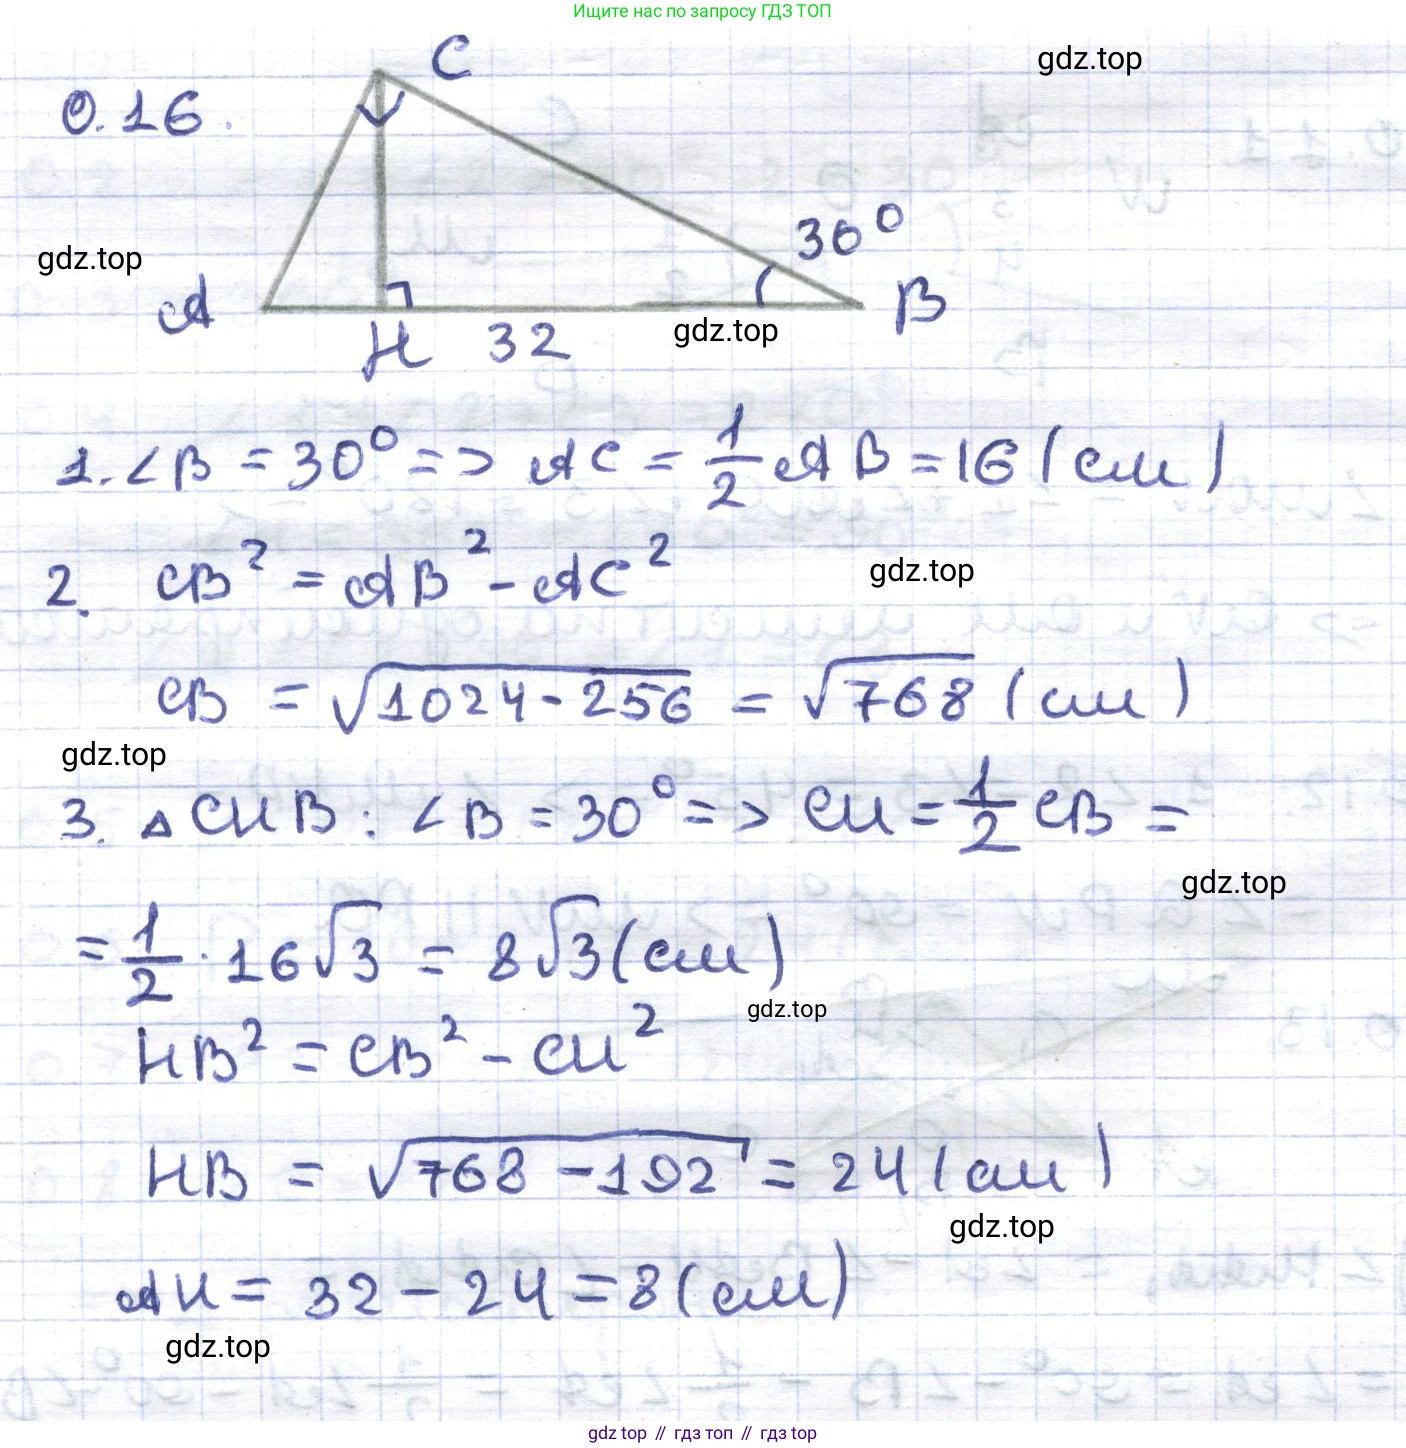 Ищите нас по запросу ГДЗ ТОП
C
gdz.top
0.16.
30°
gdz.top
A
B
H
32
gdz.top
1. ∠B = 30° => AC = 1/2 AB = 16 (см)
2. CB² = AB² - AC²
gdz.top
CB = √1024 - 256 = √768 (см)
gdz.top
3. △CHB: ∠B = 30° => CH = 1/2 CB =
gdz.top
= 1/2 · 16√3 = 8√3 (см)
gdz.top
HB² = CB² - CH²
HB = √768 - 192 = 24 (см)
gdz.top
AH = 32 - 24 = 8 (см)
gdz.top
gdz top // гдз топ // гдз top